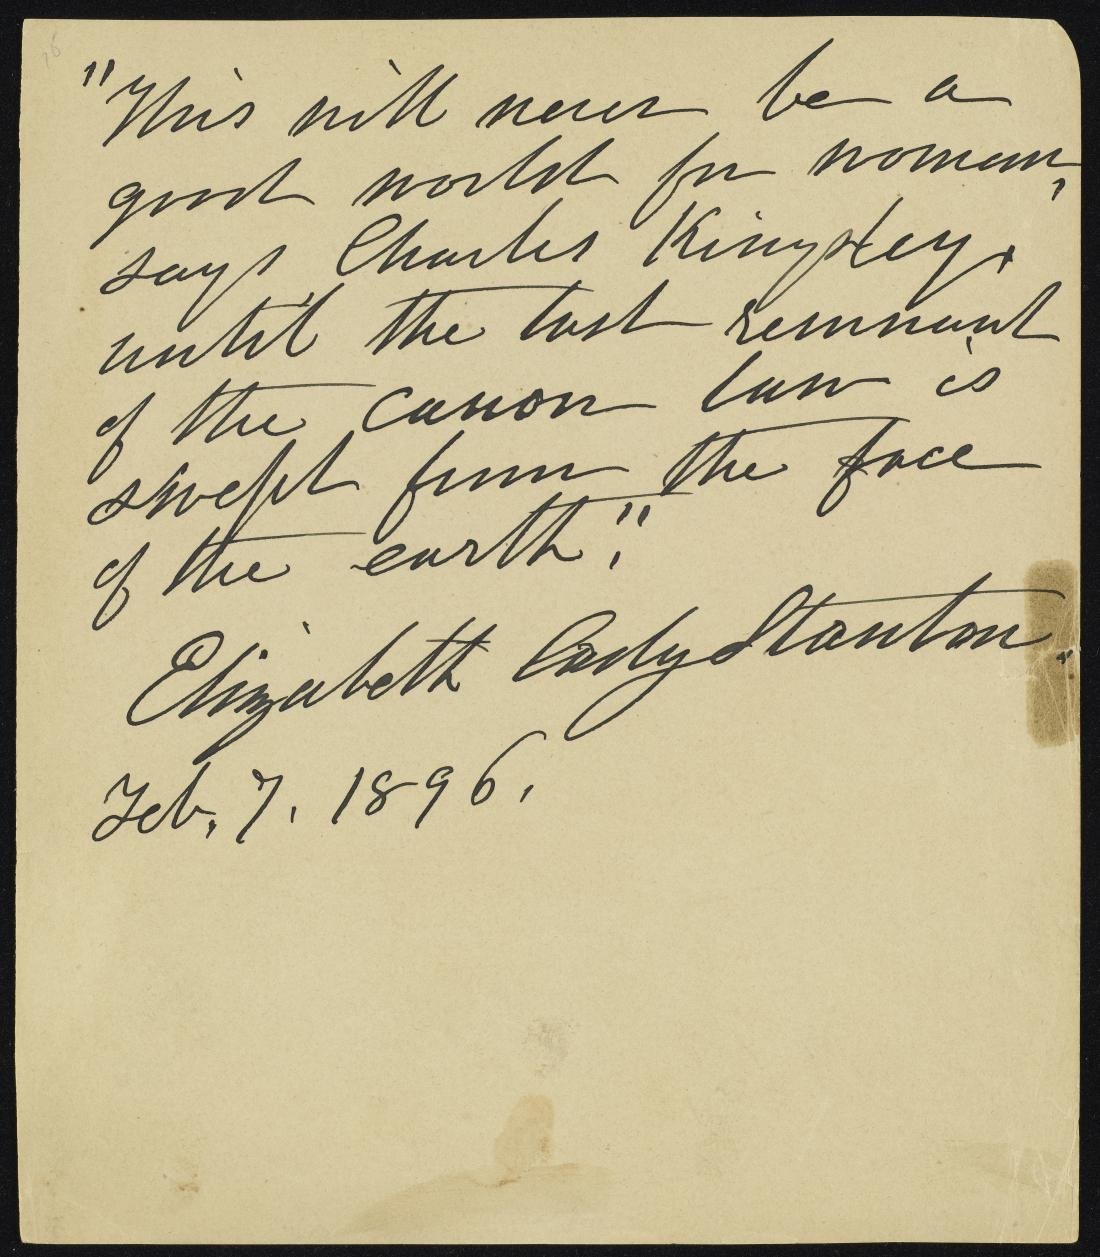 "This will never be a
good world for woman,
says Charles Kingsley,
until the last remnant
of the canon law is
swept from the face
of the earth."
Elizabeth Cady Stanton.
Feb. 7. 1896.